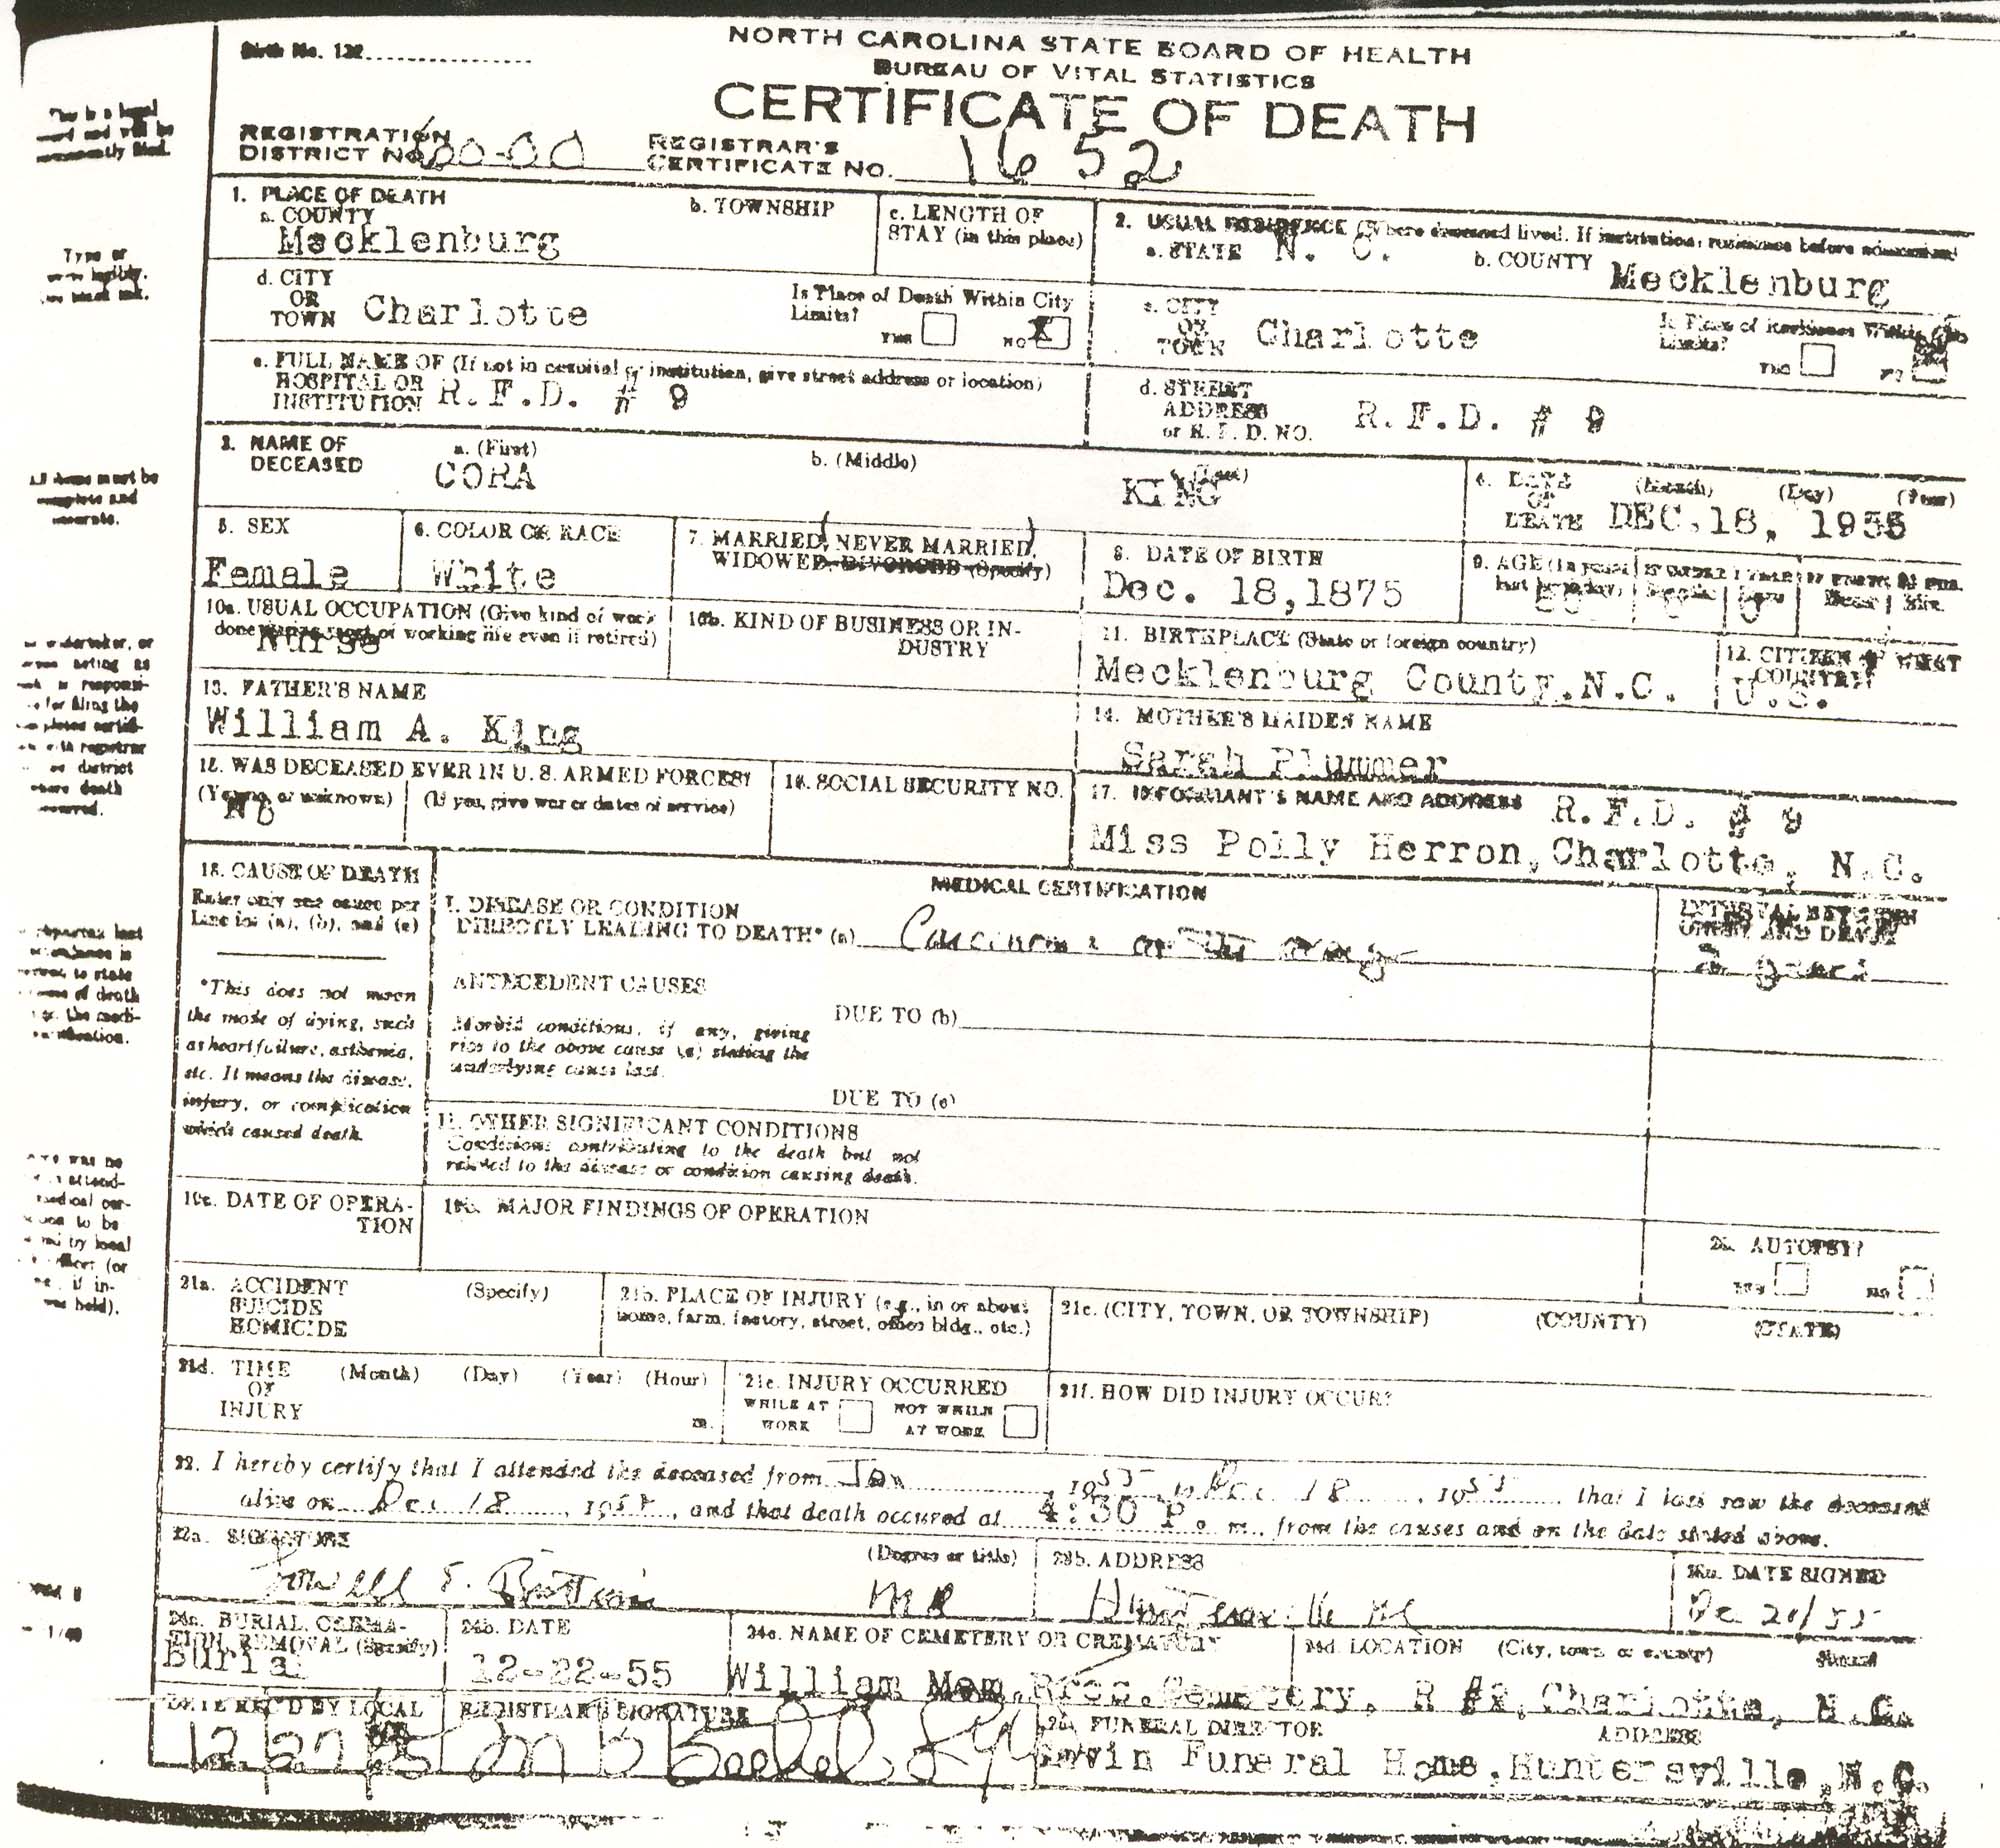 NORTH CAROLINA STATE BOARD OF HEALTH
Birth No. 132
BUREAU OF VITAL STATISTICS
CERTIFICATE OF DEATH
REGISTRATION DISTRICT NO. 60-00 REGISTRAR'S CERTIFICATE NO. 1652
1. PLACE OF DEATH
a. COUNTY Mecklenburg b. TOWNSHIP c. LENGTH OF STAY (in this place)
2. USUAL RESIDENCE (Where deceased lived. If institution, residence before
a. STATE N. C. b. COUNTY Mecklenburg
d. CITY OR TOWN Charlotte Is Place of Death Within City Limits? YES NO X
c. CITY OR TOWN Charlotte Is Place of Residence Within Limits? YES NO
e. FULL NAME OF (If not in hospital or institution, give street address or location)
HOSPITAL OR INSTITUTION R.F.D. # 9
d. STREET ADDRESS or R. F. D. NO. R.F.D. # 9
3. NAME OF DECEASED a. (First) CORA b. (Middle) c. (Last) KING
4. DATE OF DEATH (Month) (Day) (Year) DEC.18, 1955
5. SEX Female
6. COLOR OR RACE White
7. MARRIED, NEVER MARRIED, WIDOWED, DIVORCED (Specify)
8. DATE OF BIRTH Dec. 18,1875
9. AGE (In years last birthday) 80
10a. USUAL OCCUPATION (Give kind of work done during most of working life even if retired) Nurse
10b. KIND OF BUSINESS OR INDUSTRY
11. BIRTHPLACE (State or foreign country) Mecklenburg County,N.C.
12. CITIZEN OF WHAT COUNTRY? U.S.
13. FATHER'S NAME
William A. King
14. MOTHER'S MAIDEN NAME
Sarah Plummer
15. WAS DECEASED EVER IN U. S. ARMED FORCES?
(Yes, no, or unknown) No (If yes, give war or dates of service)
16. SOCIAL SECURITY NO.
17. INFORMANT'S NAME AND ADDRESS R.F.D. # 9
Miss Polly Herron,Charlotte, N.C.
18. CAUSE OF DEATH
Enter only one cause per line for (a), (b), and (c)
*This does not mean
the mode of dying, such
as heart failure, asthenia,
etc. It means the disease,
injury, or complication
which caused death.
MEDICAL CERTIFICATION
I. DISEASE OR CONDITION
DIRECTLY LEADING TO DEATH* (a) Carcinoma of the
INTERVAL BETWEEN ONSET AND DEATH
2 years
ANTECEDENT CAUSES
DUE TO (b)
Morbid conditions, if any, giving
rise to the above cause (a) stating the
underlying cause last.
DUE TO (c)
II. OTHER SIGNIFICANT CONDITIONS
Conditions contributing to the death but not
related to the disease or condition causing death.
19a. DATE OF OPERATION
19b. MAJOR FINDINGS OF OPERATION
20. AUTOPSY?
YES NO
21a. ACCIDENT SUICIDE HOMICIDE (Specify)
21b. PLACE OF INJURY (e.g., in or about home, farm, factory, street, office bldg., etc.)
21c. (CITY, TOWN, OR TOWNSHIP) (COUNTY) (STATE)
21d. TIME OF INJURY (Month) (Day) (Year) (Hour) m.
21e. INJURY OCCURRED
WHILE AT WORK NOT WHILE AT WORK
21f. HOW DID INJURY OCCUR?
22. I hereby certify that I attended the deceased from Jan, 1955 to Dec. 18, 1955 that I last saw the deceased
alive on Dec 18, 1955, and that death occured at 4:30 P. m., from the causes and on the date stated above.
SIGNATURE (Degree or title)
Lowell S. Brittain MD
23b. ADDRESS
Huntersville NC
DATE SIGNED
Dec 20/55
24a. BURIAL, CREMATION, REMOVAL (Specify)
Burial
24b. DATE
12-22-55
24c. NAME OF CEMETERY OR CREMATORY 24d. LOCATION (City, town or county)
William Mem. Cemetery, R #2,Charlotte, N.C.
DATE REC'D BY LOCAL
12/27/55
REGISTRAR'S SIGNATURE
25. FUNERAL DIRECTOR ADDRESS
Funeral Home,Huntersville,N.C.